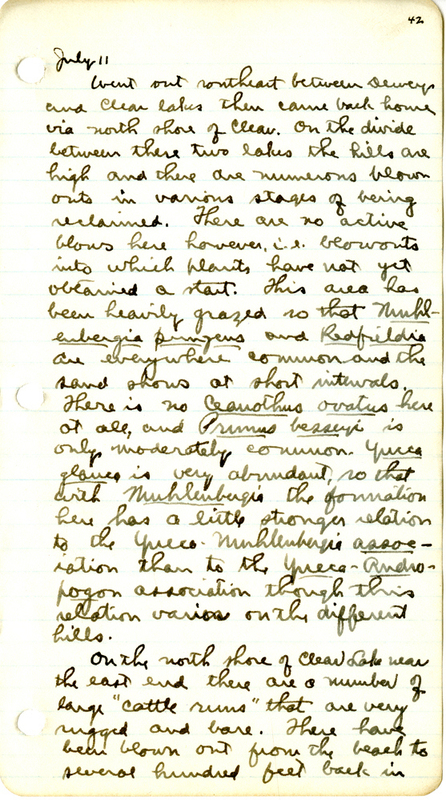 42
July 11
Went out southeast between Dewey
and Clear lakes then came back home
via north shore of Clear. On the divide
between these two lakes the hills are
high and there are numerous blow
outs in various stages of being
reclaimed. There are no active
blows here however, i.e. blowouts
into which plants have not yet
obtained a start. This area has
been heavily grazed so that Muhl-
enbergia pungens and Redfieldia
are everywhere common and the
sand shows at short intervals.
There is no Ceanothus ovatus here
at all, and Prunus besseyi is
only moderately common. Yucca
glauca is very abundant, so that
with Muhlenbergia the formation
here has a little stronger relation
to the Yucca-Muhlenbergia assoc-
iation than to the Yucca-Andro-
pogon association though this
relation varies on the different
hills.
On the north shore of Clear Lake near
the east end there are a number of
large "cattle runs" that are very
rugged and bare. These have
been blown out from the beach to
several hundred feet back in